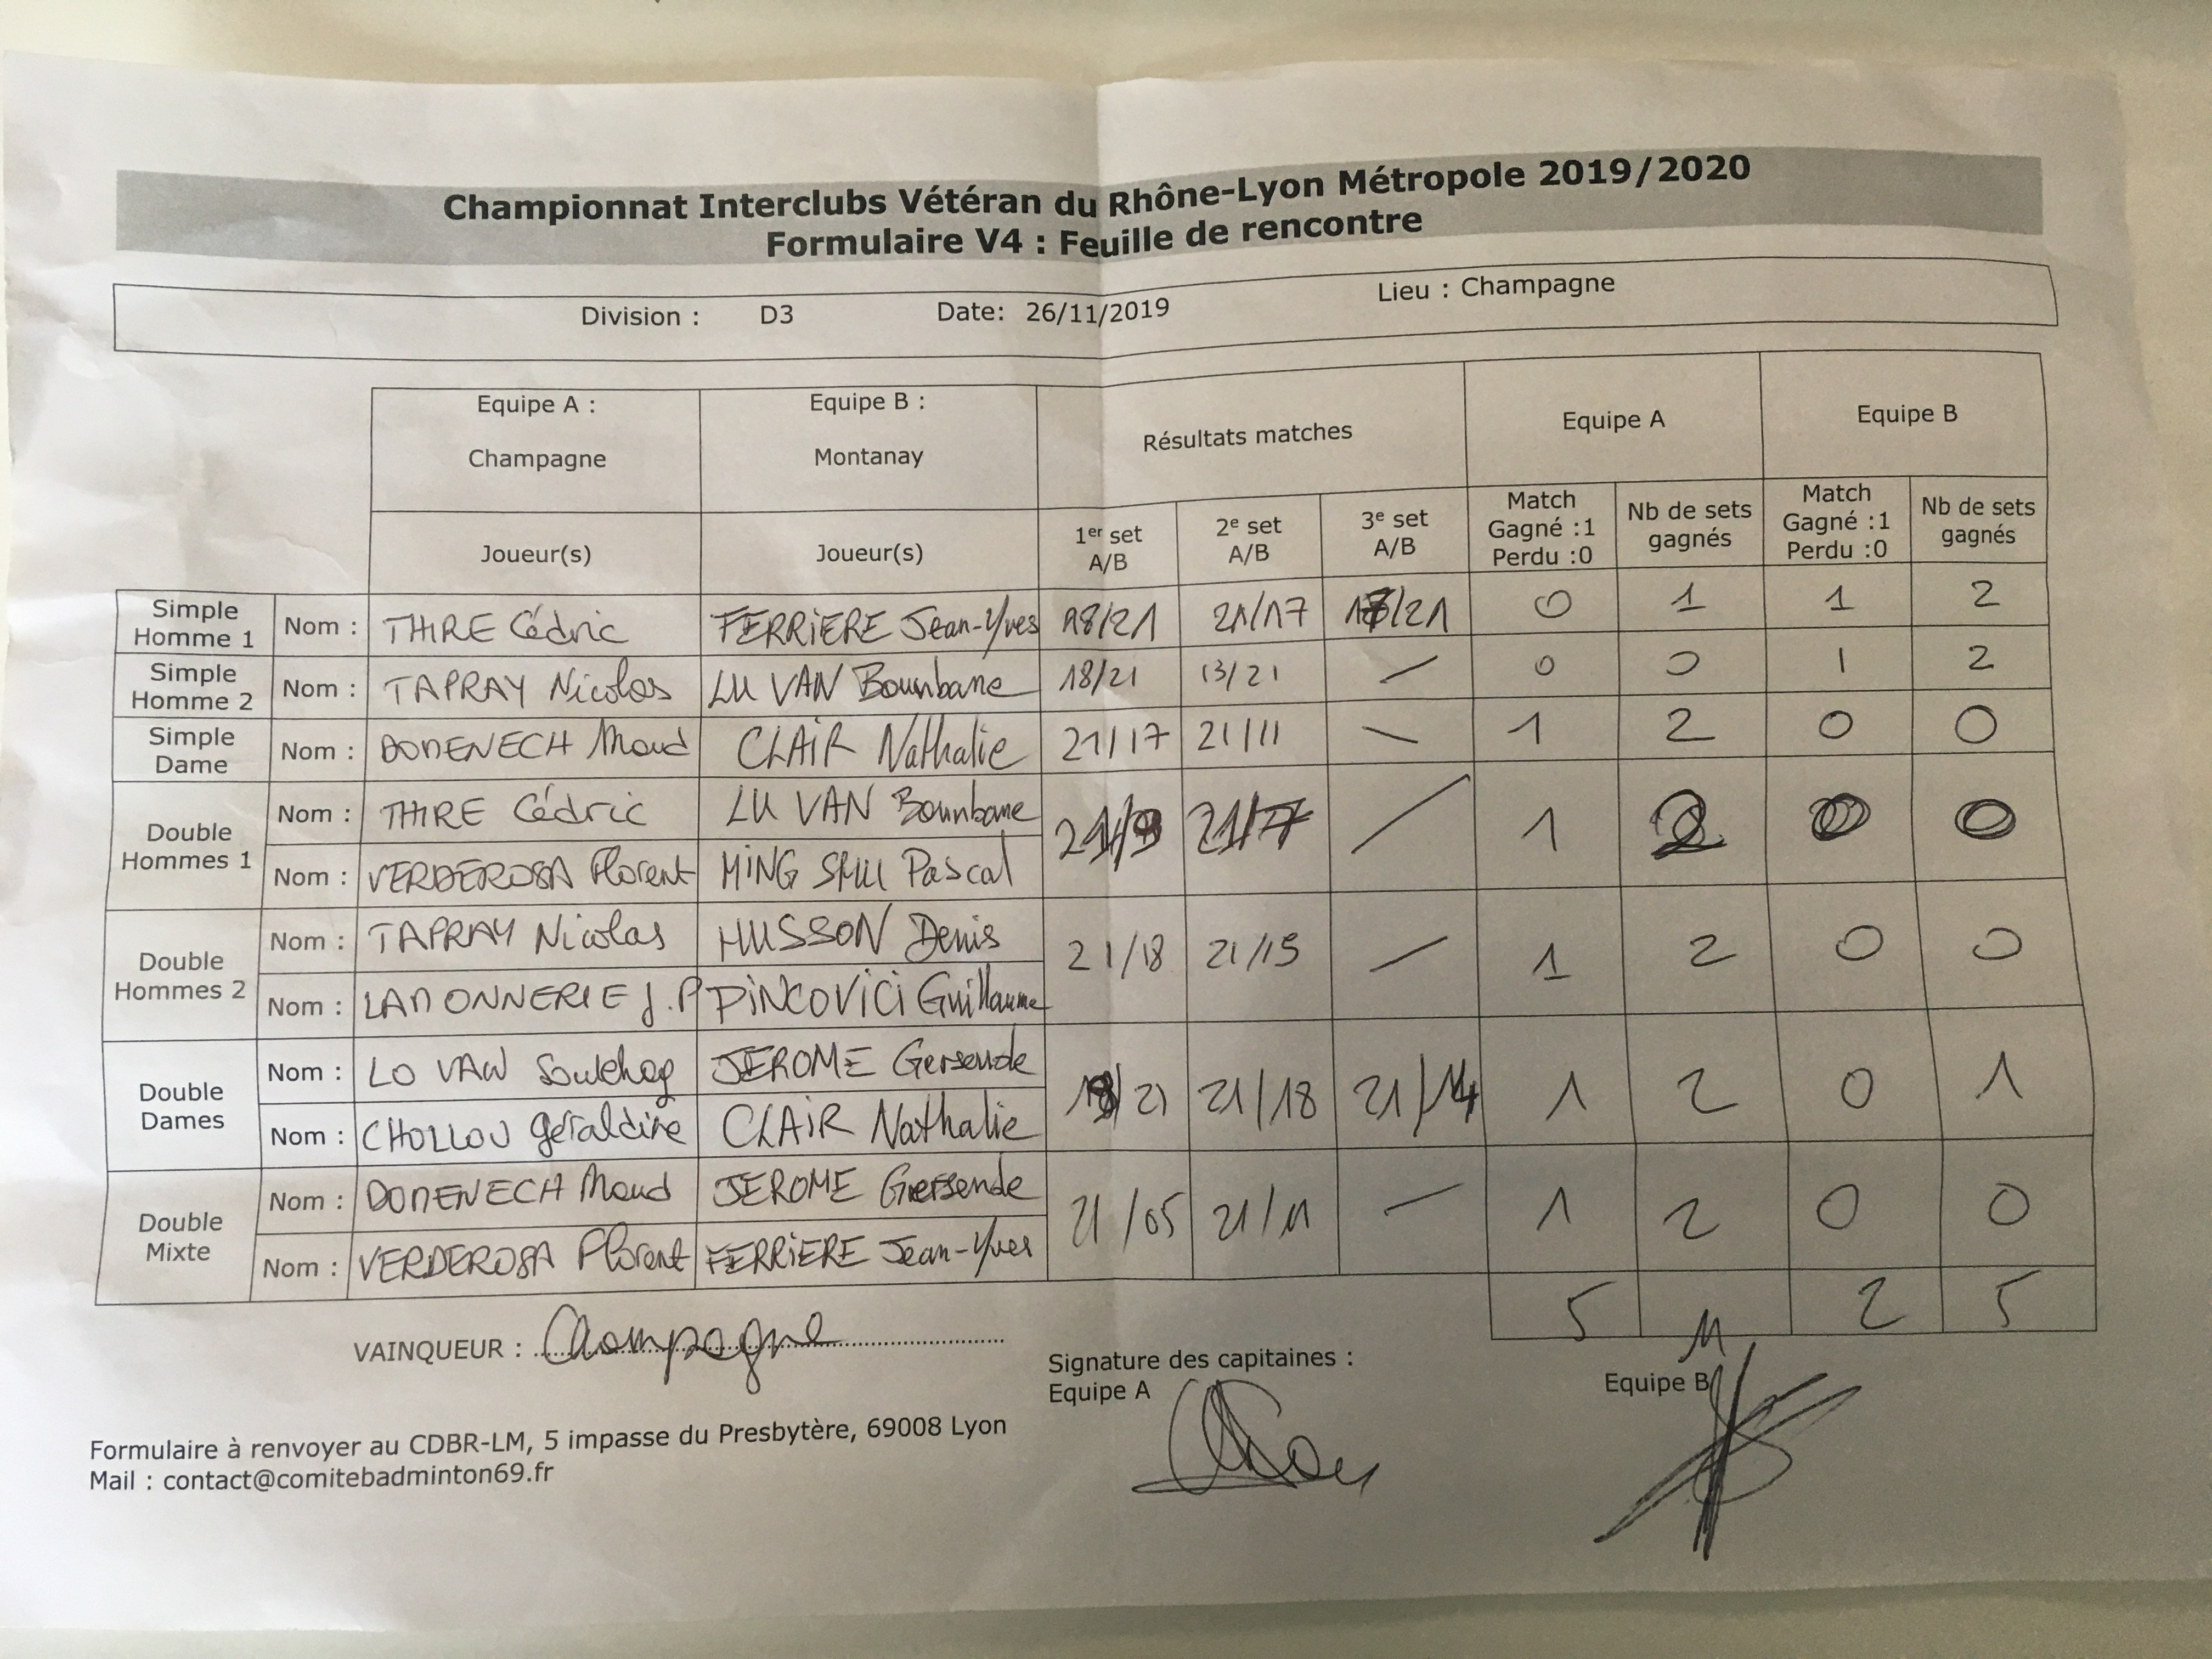 Championnat Interclubs Vétéran du Rhône-Lyon Métropole 2019/2020
Formulaire V4 : Feuille de rencontre
Division : D3 Date: 26/11/2019 Lieu : Champagne
Equipe A : Champagne
Equipe B : Montanay
Résultats matches
Equipe A
Equipe B
Joueur(s)
Joueur(s)
1er set A/B
2e set A/B
3e set A/B
Match Gagné :1 Perdu :0
Nb de sets gagnés
Match Gagné :1 Perdu :0
Nb de sets gagnés
Simple Homme 1 Nom : THIRE Cédric FERRIERE Jean-Yves 18/21 21/17 /21 0 1 1 2
Simple Homme 2 Nom : TAPRAY Nicolas LU VAN Bounbane 18/21 13/21 / 0 0 1 2
Simple Dame Nom : DOMENECH Maud CLAIR Nathalie 21/17 21/11 — 1 2 0 0
Double Hommes 1 Nom : THIRE Cédric LU VAN Bounbane 21/9 21/ / 1 2 0 0
Nom : VERDEROSA Florent MING Pascal
Double Hommes 2 Nom : TAPRAY Nicolas HUSSON Denis 21/18 21/15 / 1 2 0 0
Nom : LAMONNERIE J.P PINCOVICI Guillaume
Double Dames Nom : LO VAN JEROME Gersende /21 21/18 21/14 1 2 0 1
Nom : CHOLLOU Géraldine CLAIR Nathalie
Double Mixte Nom : DOMENECH Maud JEROME Gersende 21/05 21/11 — 1 2 0 0
Nom : VERDEROSA Florent FERRIERE Jean-Yves
5 11 2 5
VAINQUEUR : Champagne
Signature des capitaines :
Equipe A
Equipe B
Formulaire à renvoyer au CDBR-LM, 5 impasse du Presbytère, 69008 Lyon
Mail : contact@comitebadminton69.fr